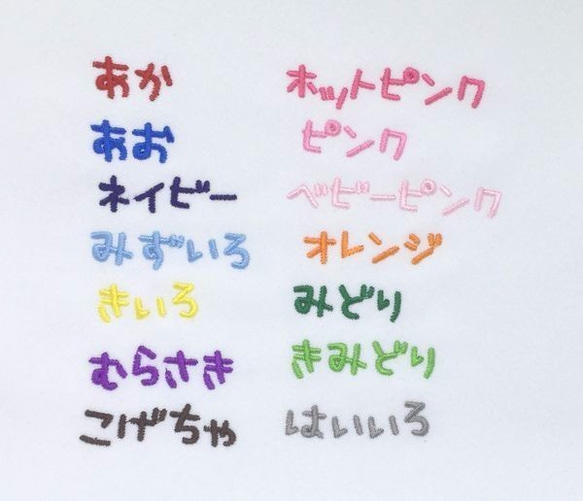 あか
あお
ネイビー
みずいろ
きいろ
むらさき
こげちゃ
ホットピンク
ピンク
ベビーピンク
オレンジ
みどり
きみどり
はいいろ